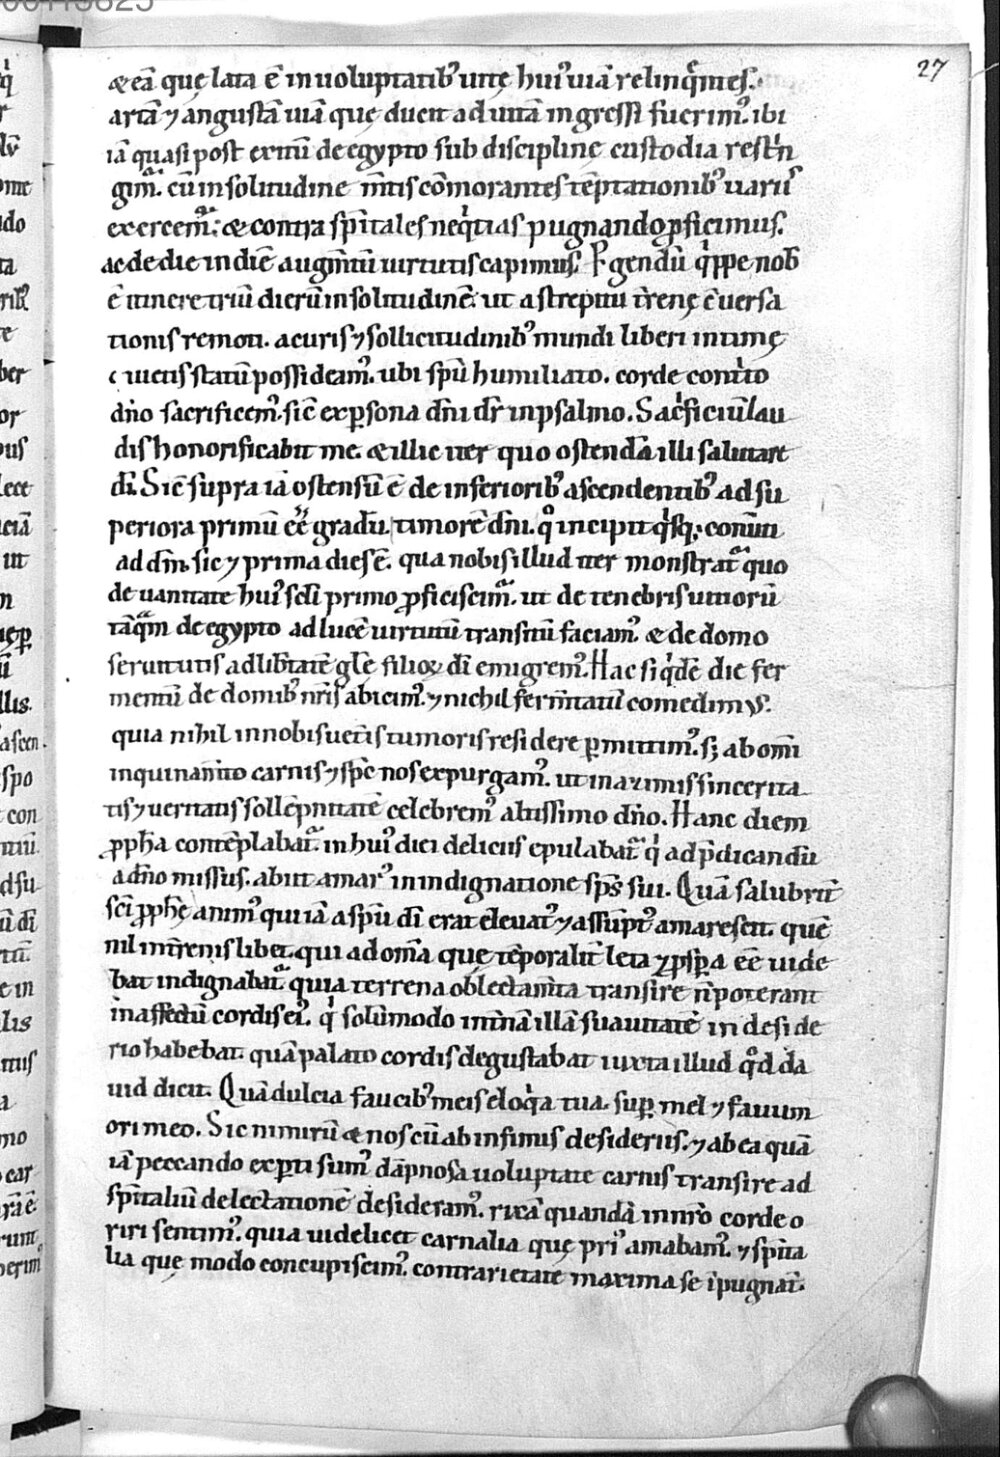 27
&eā quę lata ē in uoluptatib᾽ uitę hui᾽ uiā relinq̄nteſ.
artā ⁊ anguſtā uiā quę ducit ad uitā ingreſſi fuerim᾽. ibi
iā quaſi poſt exitū de egypto ſub diſciplinę cuſtodia reſtrin
gim̄. cū in ſolitudine m̄tiſ cōmoranteſ tēptationib᾽ uariiſ
exercem̄. & contra ſpiritaleſ neq̇tiaſ pugnando ꝓficimuſ.
ac de die in diē augm̄tū uirtutiſ capimuſ. Pergendū q̇ppe nob̄
ē itinere triū dierū in ſolitudinē. ut a ſtrepitu t̄renę cūerſa
tioniſ remoti. a curiſ ⁊ ſollicitudinib᾽ mundi liberi intimę
quietiſ ſtatū poſſideam᾽. ubi ſpū humiliato. corde cont̓to
dn̄o ſacrificem᾽. ſic̄ ex ꝑſona dn̄i dr̄ in pſalmo. Sac̓ficiū lau
diſ honorificabit me. & illic iter quo oſtendā illi ſalutare
dī. Sic̄ ſupra iā oſtenſū ē de inferiorib᾽ aſcendentib᾽ ad ſu
periora primū eē gradū. timorē dn̄i. q̊ incipit q̇ſq; conuti
ad dm̄. ſic ⁊ prima dieſ ē. qua nobiſ illud iter monſtrat̄ quo
de uanitate hui᾽ ſcl̄i primo ꝓficiſcim̄. ut de tenebriſ uitiorū
tāq̄m de egypto ad lucē uirtutū tranſitū faciam᾽. & de domo
ſeruitutiſ ad lib̄tatē gl̄e filioꝝ dī emigrem᾽. Hac ſiq̇dē die fer
mentū de domib᾽ nr̄iſ abicim᾽. ⁊ nichil ferm̄tatū comedimuſ.
quia nihil in nobiſ uet̄iſ tumoriſ reſidere ꝑmittim᾽. ſꝫ ab om̄i
inquinam̄to carniſ ⁊ ſpc̄ noſ expurgam᾽. ut in azimiſ ſincerita
tiſ ⁊ ueritatiſ ſollēpnitatē celebrem᾽ altiſſimo dn̄o. Hanc diem
ꝓph̄a contēplabat̄. in hui᾽ diei deliciiſ epulabat̄ q̇ ad p̄dicandū
a dn̄o miſſuſ. abiit amar᾽ in indignatione ſpc̄ ſui. Quā ſalubrit̄
ſcī ꝓph̄ę anim᾽ qui iā a ſpū dī erat eleuat᾽ ⁊ aſſūpt᾽ amareſcit. quē
nil int̄reniſ libet. qui ad om̄a quę tēporalit̄ leta ⁊ ꝓſꝑa eē uide
bat indignabat̄. quia terrena oblectam̄ta tranſire n̄ poterant
in affectū cordiſ ei᾽. q̇ ſolūmodo int̄nā illā ſuauitatē in deſide
rio habebat. quā palato cordiſ deguſtabat iuxta illud q̊d da
uid dicit. Quā dulcia faucib᾽ meiſ eloq̇a tua. ſuꝑ mel ⁊ fauum
ori meo. Sic nimirū & noſ cū ab infimiſ deſideriiſ. ⁊ ab ea quā
iā peccando exꝑti ſum᾽ dāpnoſa uoluptate carniſ tranſire ad
ſpiritaliū delectationē deſideram᾽. rixā quandā in nr̄o corde o
riri ſentim᾽. quia uidelicet carnalia quę pri᾽ amabam᾽. ⁊ ſpirita
lia quę modo concupiſcim᾽. contrarietate maxima ſe īpugnāt.